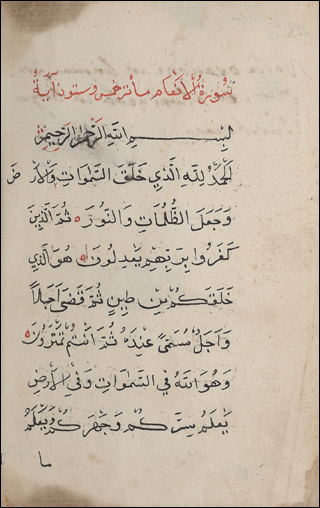 سُورَةُ الْأَنْعَامِ مِائَة وَخَمْس وَسِتُّونَ آيَةً
بِسْمِ اللَّهِ الرَّحْمَنِ الرَّحِيمِ
الْحَمْدُ لِلَّهِ الَّذِي خَلَقَ السَّمَوَاتِ وَالْأَرْضَ
وَجَعَلَ الظُّلُمَاتِ وَالنُّورَ ثُمَّ الَّذِينَ
كَفَرُوا بِرَبِّهِمْ يَعْدِلُونَ هُوَ الَّذِي
خَلَقَكُمْ مِنْ طِينٍ ثُمَّ قَضَى أَجَلًا
وَأَجَلٌ مُسَمًّى عِنْدَهُ ثُمَّ أَنْتُمْ تَمْتَرُونَ
وَهُوَ اللَّهُ فِي السَّمَوَاتِ وَفِي الْأَرْضِ
يَعْلَمُ سِرَّكُمْ وَجَهْرَكُمْ وَيَعْلَمُ
مَا